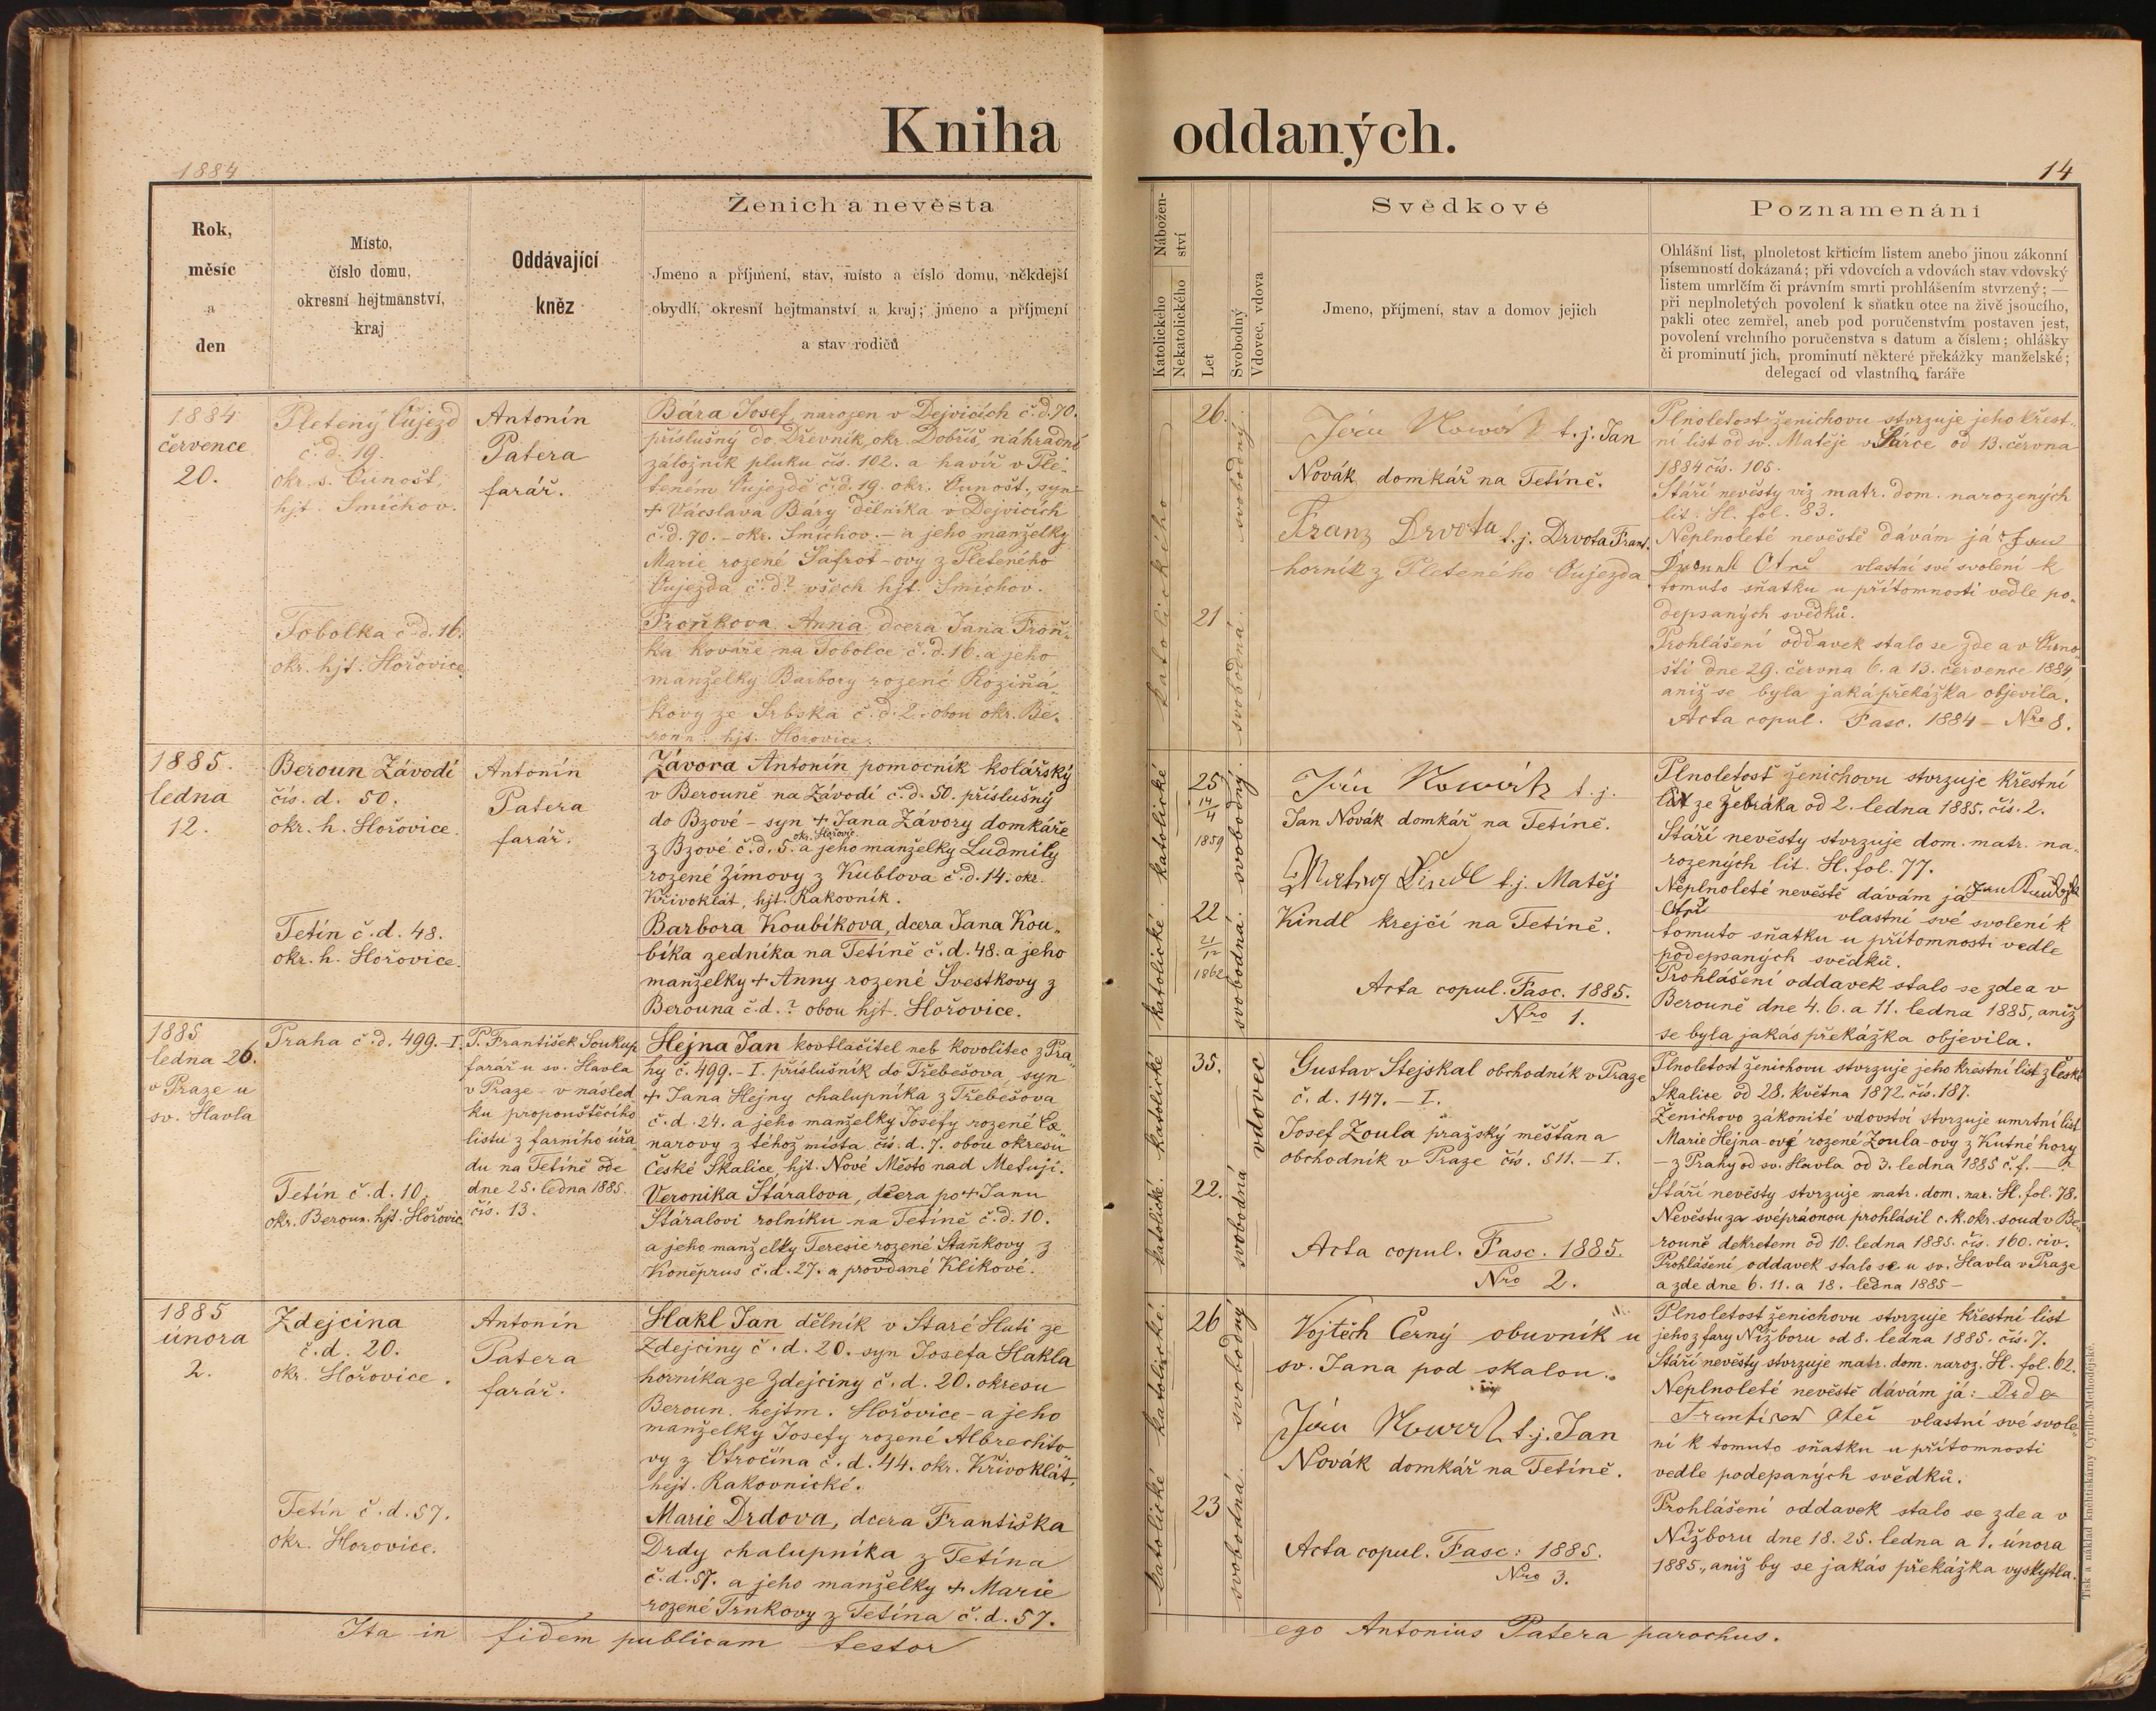 Kniha oddaných.
1884
14
Rok,
měsíc
a
den
Místo,
číslo domu,
okresní hejtmanství,
kraj
Oddávající
kněz
Ženich a nevěsta
Jmeno a příjmení, stav, místo a číslo domu, někdejší
obydlí, okresní hejtmanství a kraj; jmeno a příjmení
a stav rodičů
Nábožen-
ství
Katolického
Nekatolického
Let
Svobodný
Vdovec, vdova
Svědkové
Jmeno, příjmení, stav a domov jejich
Poznamenání
Ohlášní list, plnoletost krticím listem anebo jinou zákonní
písemností dokázaná; při vdovcích a vdovách stav vdovský
listem umrlčím či právním smrti prohlášením stvrzený; —
při neplnoletých povolení k sňatku otce na živě jsoucího,
pakli otec zemřel, aneb pod poručenstvím postaven jest,
povolení vrchního poručenstva s datum a číslem; ohlášky
či prominutí jich, prominutí některé překážky manželské;
delegací od vlastního faráře
1884
července
20.
Pletený Oujezd
č. d. 19.
okr. s. Ounošť,
hjt. Smíchov.
Tobolka č. d. 16.
okr. hjt. Hořovice.
Antonín
Patera
farář.
Bára Josef, narozen v Dejvicích č. d. 70.
příslušný do Dřevník, okr. Dobříš, náhradní
záložník pluku čís. 102. a havíř v Ple-
teném Oujezdě č. d. 19. okr. Ounošť, syn
+ Václava Báry dělníka v Dejvicích
č. d. 70. – okr. Smíchov. – a jeho manželky
Marie rozené Šafrot-ovy z Pleteného
Oujezda č. d.? všech hjt. Smíchov.
Froňkova Anna dcera Jana Froň-
ka kováře na Tobolce č. d. 16. a jeho
manželky Barbory rozené Roziňá-
kovy ze Srbska č. d. 2. obou okr. Be-
roun hjt. Hořovice.
katolického
26.
21
svobodný
svobodná
t. j. Jan
Novák domkář na Tetíně.
Franz Drvota t. j. Drvota Frant.
horník z Pleteného Oujezda.
Plnoletost ženichovu stvrzuje jeho křest-
ní list od sv. Matěje v Šárce od 13. června
1884 čís. 105.
Stáří nevěsty viz matr. dom. narozených
lit. H. fol. 83.
Neplnoleté nevěstě dávám já Jan
vlastní své svolení k
tomuto sňatku u přítomnosti vedle po-
depsaných svědků.
Prohlášení oddavek stalo se zde a v Ouno-
šti dne 29. června 6. a 13. července 1884,
aniž se byla jaká překážka objevila.
Acta copul. Fasc. 1884 – Nro 8.
1885.
ledna
12.
Beroun Závodí
čís. d. 50.
okr. h. Hořovice.
Tetín č. d. 48.
okr. h. Hořovice.
Antonín
Patera
farář.
Závora Antonín pomocník kolářský
v Berouně na Závodí č. d. 50. příslušný
do Bzové – syn + Jana Závory domkáře
z Bzové č. d. 5. okr. Hořovic. a jeho manželky Ludmily
rozené Zímovy z Kublova č. d. 14. okr.
Křivoklát, hjt. Rakovník.
Barbora Koubíkova, dcera Jana Kou-
bíka zedníka na Tetíně č. d. 48. a jeho
manželky + Anny rozené Švestkovy z
Berouna č. d. ? obou hjt. Hořovice.
katolické katolické
25
14/4
1859
22
21/12
1862
svobodný
svobodná
t. j.
Jan Novák domkář na Tetíně.
t. j. Matěj
Kindl krejčí na Tetíně.
Acta copul. Fasc. 1885.
Nro 1.
Plnoletost ženichovu stvrzuje křestní
list ze Žebráka od 2. ledna 1885. čís. 2.
Stáří nevěsty stvrzuje dom. matr. na-
rozených lit. H. fol. 77.
Neplnoleté nevěstě dávám já Jan
vlastní své svolení k
tomuto sňatku u přítomnosti vedle
podepsaných svědků.
Prohlášení oddavek stalo se zde a v
Berouně dne 4. 6. a 11. ledna 1885, aniž
se byla jakás překážka objevila.
1885
ledna 26.
v Praze u
sv. Havla
Praha č. d. 499. – I.
Tetín č. d. 10.
okr. Beroun. hjt. Hořovic.
P. František Soukup
farář u sv. Havla
v Praze – v násled-
ku propouštěcího
listu z farního úřa-
du na Tetíně ode
dne 25. ledna 1885.
čís. 13.
Hejna Jan kovtlačitel neb kovolitec z Pra-
hy č. 499. – I. příslušník do Třebešova, syn
+ Jana Hejny chalupníka z Třebešova
č. d. 24. a jeho manželky Josefy rozené
narovy z téhož místa čís. d. 7. obou okresu
České Skalice, hjt. Nové Město nad Metují.
Veronika Štáralova, dcera po + Janu
Štáralovi rolníku na Tetíně č. d. 10.
a jeho manželky Teresie rozené Staňkovy z
Koněprus č. d. 27. a provdané Klikové.
katolické katolické
35.
22.
vdovec
svobodná
Gustav Stejskal obchodník v Praze
č. d. 147. – I.
Josef Zoula pražský měšťan a
obchodník v Praze čís. 511. – I.
Acta copul. Fasc. 1885.
Nro 2.
Plnoletost ženichovu stvrzuje jeho křestní list z České
Skalice od 28. května 1872. čís. 187.
Ženichovo zákonité vdovství stvrzuje umrtní list
Marie Hejna-ové rozené Zoula-ovy z Kutné hory
– z Prahy od sv. Havla od 3. ledna 1885 č. f. —
Stáří nevěsty stvrzuje matr. dom. nar. H. fol. 78.
Nevěstu za svéprávnou prohlásil c. k. okr. soud v Be-
rouně dekretem od 10. ledna 1885. čís. 160. civ.
Prohlášení oddavek stalo se u sv. Havla v Praze
a zde dne 6. 11. a 18. ledna 1885 –
1885
února
2.
Zdejcina
č. d. 20.
okr. Hořovice.
Tetín č. d. 57.
okr. Horovice.
Antonín
Patera
farář.
Hakl Jan dělník v Staré Huti ze
Zdejciny č. d. 20. syn Josefa Hakla
horníka ze Zdejciny č. d. 20. okresu
Beroun. hejtm. Hořovice – a jeho
manželky Josefy rozené Albrechto-
vy z Otročína č. d. 44. okr. Křivoklát,
hejt. Rakovnické.
Marie Drdova, dcera Františka
Drdy chalupníka z Tetína
č. d. 57. a jeho manželky + Marie
rozené Trnkovy z Tetína č. d. 57.
katolické katolické
26
23
svobodný
svobodná
Vojtěch Černý obuvník u
sv. Jana pod skalou.
t. j. Jan
Novák domkář na Tetíně.
Acta copul. Fasc: 1885.
Nro 3.
Plnoletost ženichovu stvrzuje křestní list
jeho z fary Nižboru od 8. ledna 1885. čís. 7.
Stáří nevěsty stvrzuje matr. dom. naroz. H. fol. 62.
Neplnoleté nevěstě dávám já: Drda
vlastní své svole-
ní k tomuto sňatku u přítomnosti
vedle podepaných svědků.
Prohlášení oddavek stalo se zde a v
Nižboru dne 18. 25. ledna a 1. února
1885., aniž by se jakás překážka vyskytla.
Ita in fidem publicam testor
ego Antonius Patera parochus.
Tisk a náklad knihtiskárny Cyrillo-Methodějské.